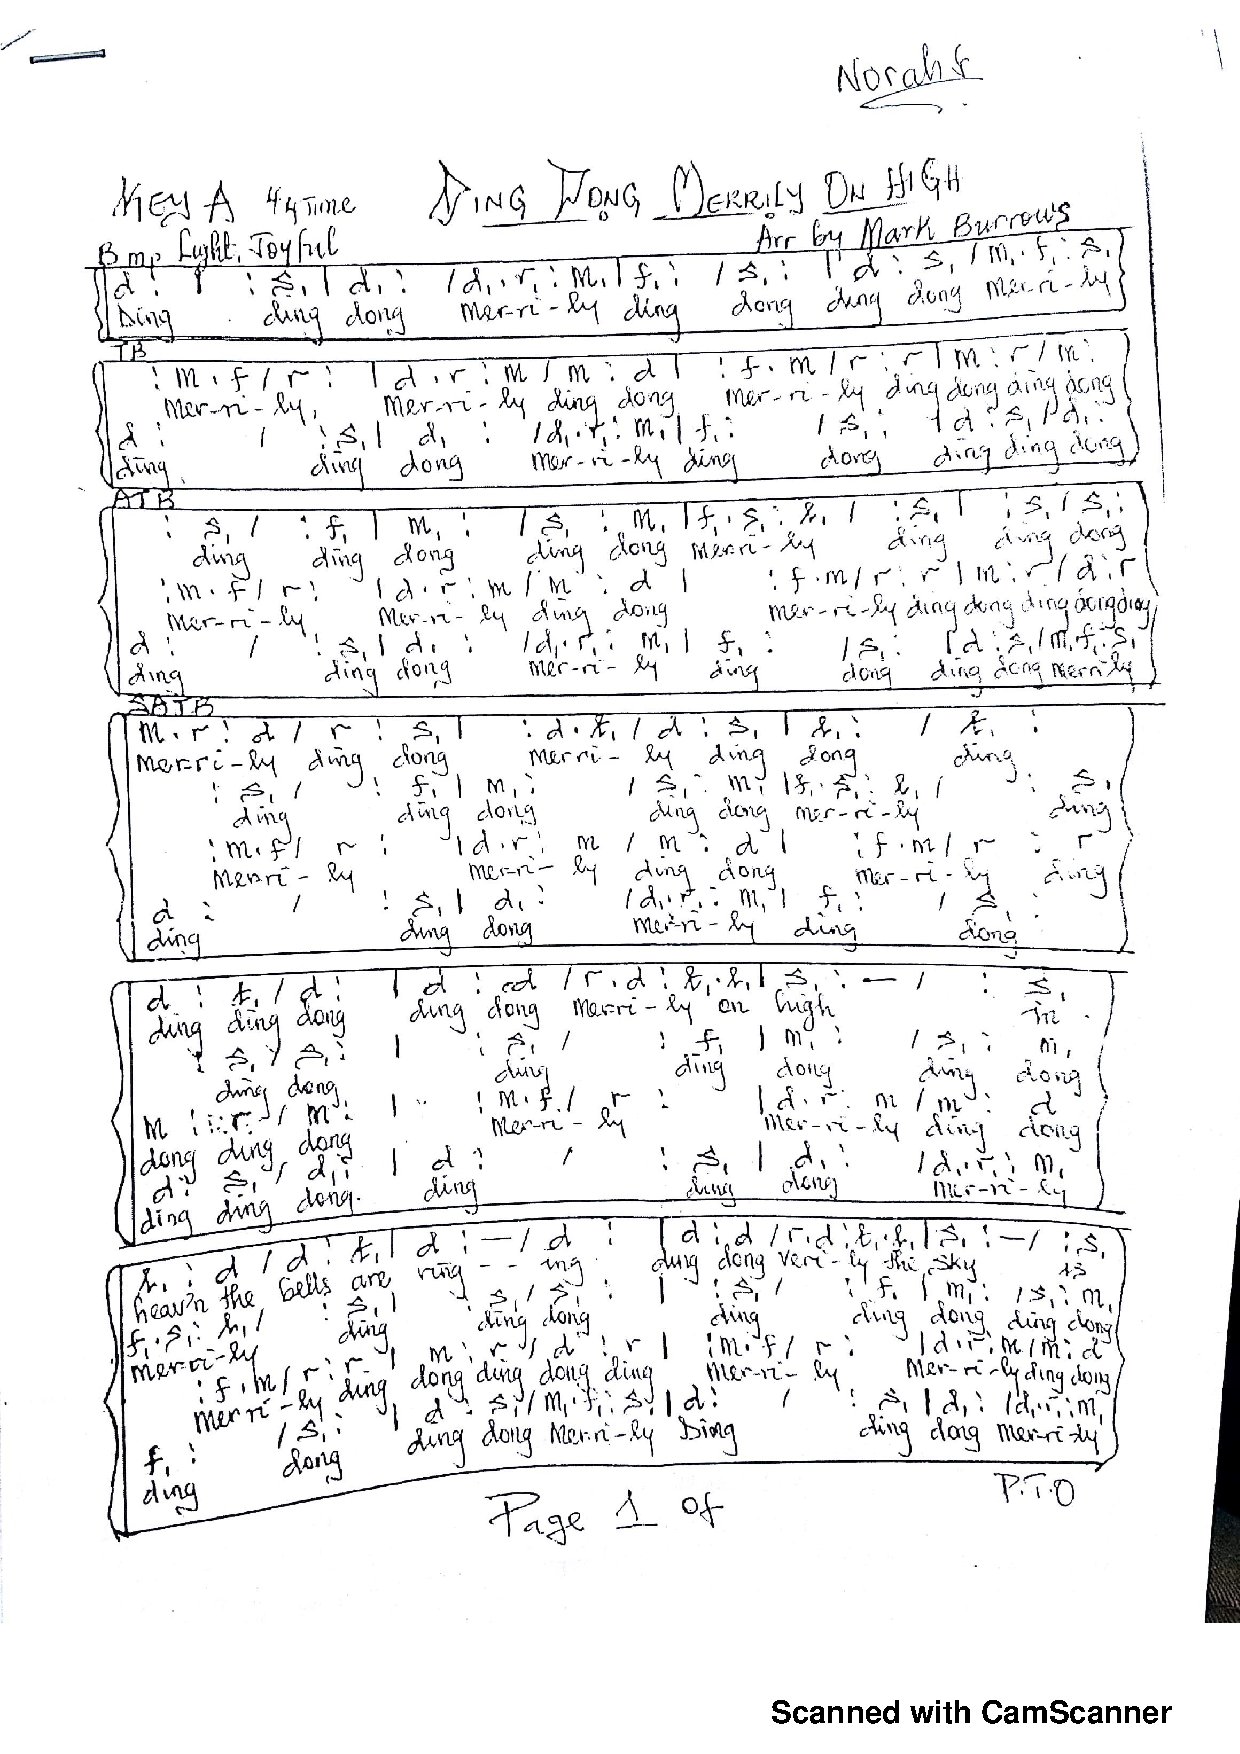 Norah
KEY A 4/4 TIME DING DONG MERRILY ON HIGH
B mp Light, Joyful Arr by Mark Burrows
d : | : s₁ | d₁ : / d₁ . r₁ : m₁ | f₁ : / s₁ : | d : s₁ / m₁ . f₁ : s₁
Ding ding dong mer-ri-ly ding dong ding dong mer-ri-ly
TB
: m . f / r : | d . r : m / m : d | : f . m / r : r | m : r / m :
Mer-ri-ly, Mer-ri-ly ding dong mer-ri-ly ding dong ding dong
d : / : s₁ | d₁ : / d₁ . r₁ : m₁ | f₁ : / s₁ : | d : s₁ / d₁ :
ding ding dong mer-ri-ly ding dong ding ding dong
ATB
: s₁ / : f₁ | m₁ : / s₁ : m₁ | f₁ . s₁ : l₁ / : s₁ | : s₁ / s₁ :
ding ding dong ding dong mer-ri-ly ding ding dong
: m . f / r : | d . r : m / m : d | : f . m / r : r | m : r / d : r
Mer-ri-ly Mer-ri-ly ding dong mer-ri-ly ding dong ding dong ding
d : / : s₁ | d₁ : / d₁ . r₁ : m₁ | f₁ : / s₁ : | d : s₁ / m₁ . f₁ : s₁
ding ding dong mer-ri-ly ding dong ding dong merrily
SATB
m . r : d / r : s₁ | : d . t₁ / d : s₁ | l₁ : / t₁ :
Mer-ri-ly ding dong merri-ly ding dong ding
: s₁ / : f₁ | m₁ : / s₁ : m₁ | f₁ . s₁ : l₁ / : s₁
ding ding dong ding dong mer-ri-ly ding
: m . f / r : | d . r : m / m : d | : f . m / r : r
Mer-ri-ly mer-ri-ly ding dong mer-ri-ly ding
d : / : s₁ | d₁ : / d₁ . r₁ : m₁ | f₁ : / s₁ :
ding ding dong mer-ri-ly ding dong
d : t₁ / d : | d : d / r . d : t₁ . l₁ | s₁ : — / : s₁
ding ding dong ding dong merri-ly on high In
: s₁ / s₁ : | : s₁ / : f₁ | m₁ : / s₁ : m₁
ding dong, ding ding dong ding dong
m : r / m : | : m . f / r : | d . r : m / m : d
dong ding dong mer-ri-ly mer-ri-ly ding dong
d : s₁ / d₁ : | d : / : s₁ | d₁ : / d₁ . r₁ : m₁
ding ding dong. ding ding dong mer-ri-ly
l₁ : d / d : t₁ | d : — / d : | d : d / r . d : t₁ . l₁ | s₁ : — / : s₁
heav'n the bells are ring - - ing ding dong veri-ly the sky is
f₁ . s₁ : l₁ / : s₁ | : s₁ / s₁ : | : s₁ / : f₁ | m₁ : / s₁ : m₁
mer-ri-ly ding ding dong ding ding dong ding dong
: f . m / r : r | m : r / d : r | : m . f / r : | d . r : m / m : d
mer ri-ly ding dong ding dong ding mer-ri-ly Mer-ri-ly ding dong
f₁ : / s₁ : | d : s₁ / m₁ . f₁ : s₁ | d : / : s₁ | d₁ : / d₁ . r₁ : m₁
ding dong ding dong Mer-ri-ly Ding ding dong mer-ri-ly
Page 1 of P.T.O
Scanned with CamScanner